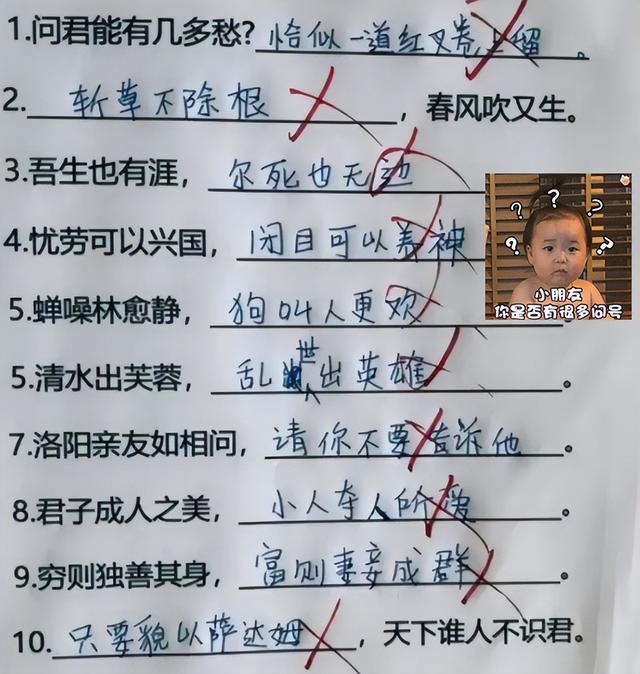 1.问君能有几多愁?恰似一道红叉卷上留。
2.斩草不除根，春风吹又生。
3.吾生也有涯，尔死也无边
4.忧劳可以兴国，闭目可以养神
5.蝉噪林愈静，狗叫人更欢
小朋友
你是否有很多问号
5.清水出芙蓉，乱世出英雄。
7.洛阳亲友如相问，请你不要告诉他。
8.君子成人之美，小人夺人所爱。
9.穷则独善其身，富则妻妾成群。
10.只要貌以萨达姆，天下谁人不识君。